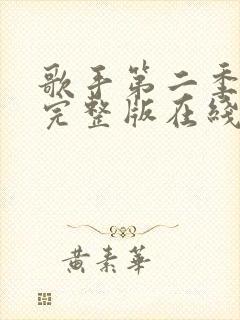 歌手第二季
完整版在綫
黃素華